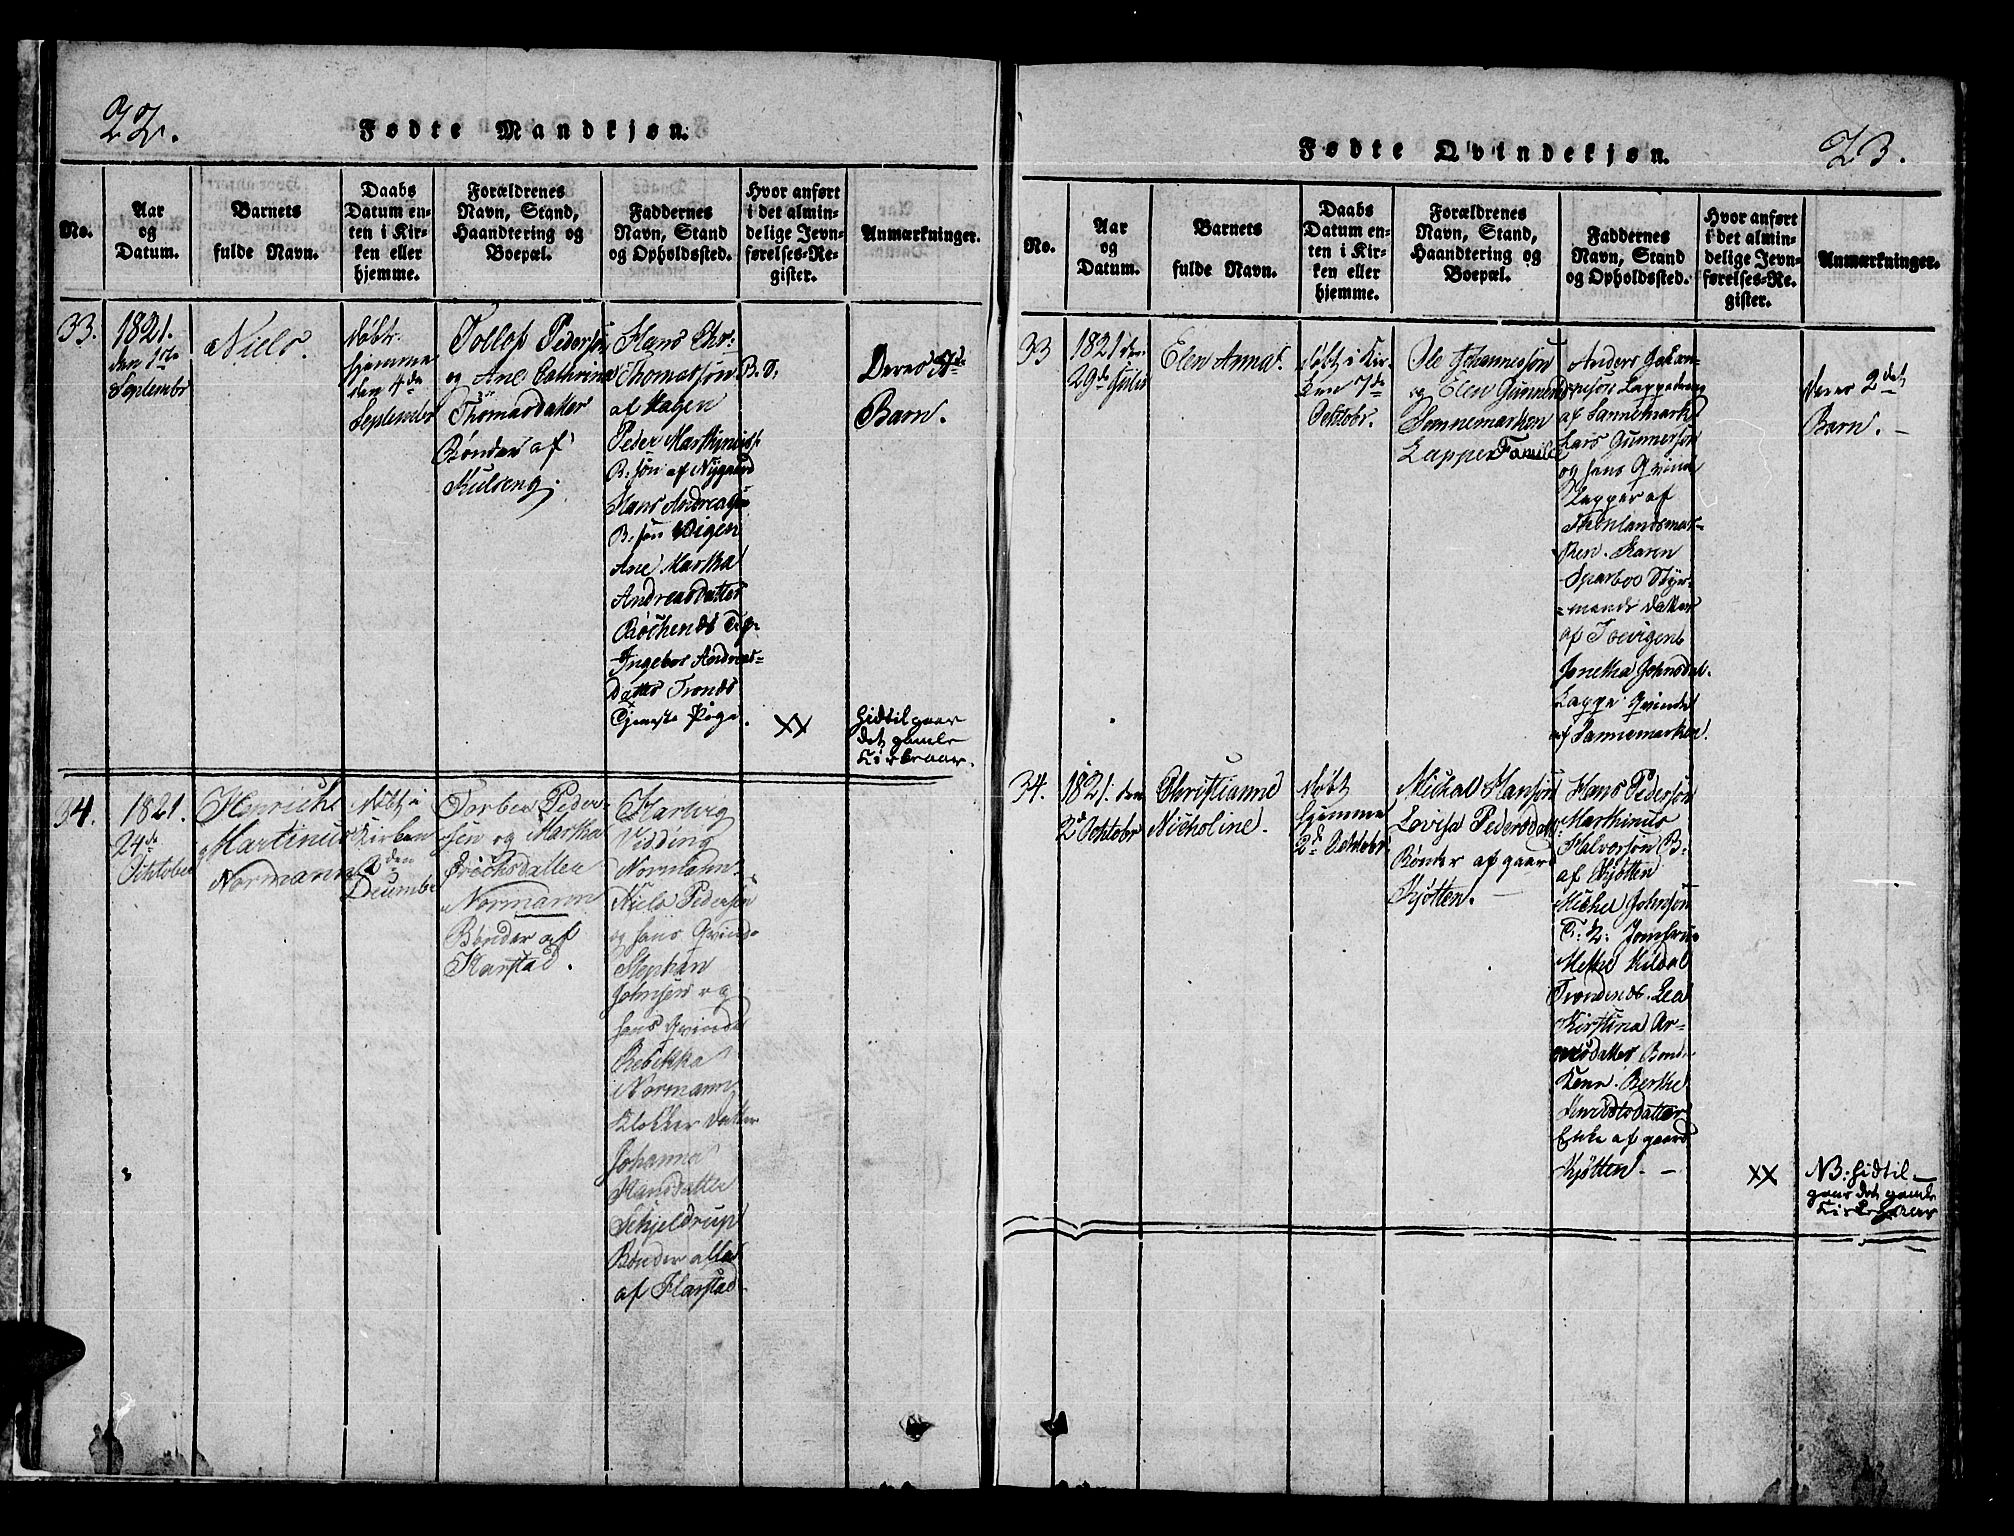 22.
Fødte Mandkjøn.
No.
Aar
og
Datum.
Barnets
fulde Navn.
Daabs
Datum en-
ten i Kir-
ken eller
hjemme.
Forældrenes
Navn, Stand,
Haandtering og
Boepæl.
Faddernes
Navn, Stand
og Opholdssted.
Hvor anført
i det almin-
delige Jevn-
førelses-Re-
gister.
Anmærkninger.
33.
1821.
den 1ste
September
Niels.
døbt
hjemme
den 4de
September
Tollof Pederson
og Ane Cathrina
Thomasdatter
Bønder af
Kulseng.
Hans Chr:
Thomasson B. S.
af Hagen
Peder Marthinis
B: søn af Nygaard
Hans Andreas
B: søn Vigen
Ane Martha
Andreasdatter
Ingebor Andreas-
datter Tronds
Tjeneste Pige.
Deres
Barn.
XX
Hidtil gaar
det gamle
Kirkeaar.
34.
1821.
24de
Octtober
Henrich
Martinus
Normann
døbt i
Kirken
den
Deumbe
Torber Peder-
sen og Martha
Erichsdatter
Normann
Bønder af
Harstad.
Hartvig
Vidding
Normann.
Niels Pedersen
og hans Qvinde
Stephan
Johnsen og
hans Qvinde
Rebekka
Normann
Klokker datter
Johanna
Hansdatter
Schjeldrup
Bønder alle
af Harstad
Fødte Qvindekjøn.
23.
No.
Aar
og
Datum.
Barnets
fulde Navn.
Daabs
Datum en-
ten i Kir-
ken eller
hjemme.
Forældrenes
Navn, Stand,
Haandtering og
Boepæl.
Faddernes
Navn, Stand
og Opholdssted.
Hvor anført
i det almin-
delige Jevn-
førelses-Re-
gister.
Anmærkninger.
33
1821 den
29de
Elen Anna.
døbt i Kir-
ken 7de
Octtobr.
Ole Johannesson
og Elen Gunners
Sannemarken
Lapper Familie
Anders
Lappedreng
af Sannemark
Lars Gunnerson
og hans Qvinde
Lapper af
ken. Karen
Sparboe Styr-
mands datter
af
Jonetha Johnsdat.
Lappe Qvinde
af Sannemarken.
deres 2det
Barn. –
34.
1821. den
2d Octtobr
Christianne
Nicholine.
døbt
hjemme
2d Octtobr
Michal Hansøn
Lovisa Pedersdat
Bønder af gaard
Kjøtten. –
Hans Pedersøn
Marthinus
Halvorsøn B.
af Kjøtten
Michel Johnsøn
Jomfrue
Methe Kildal
Trondenes. Lea
Kirstina Ar-
nesdatter Bonde
Kone. Berthe
Knudsdatter
Enke af gaard
Kjøtten. –
XX
NB: Hidtil
gaar det gamle
Kirkeaar